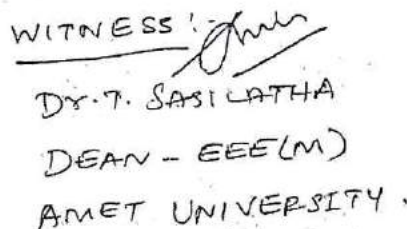 WITNESS :-
Dr. T. SASILATHA
DEAN - EEE(M)
AMET UNIVERSITY.